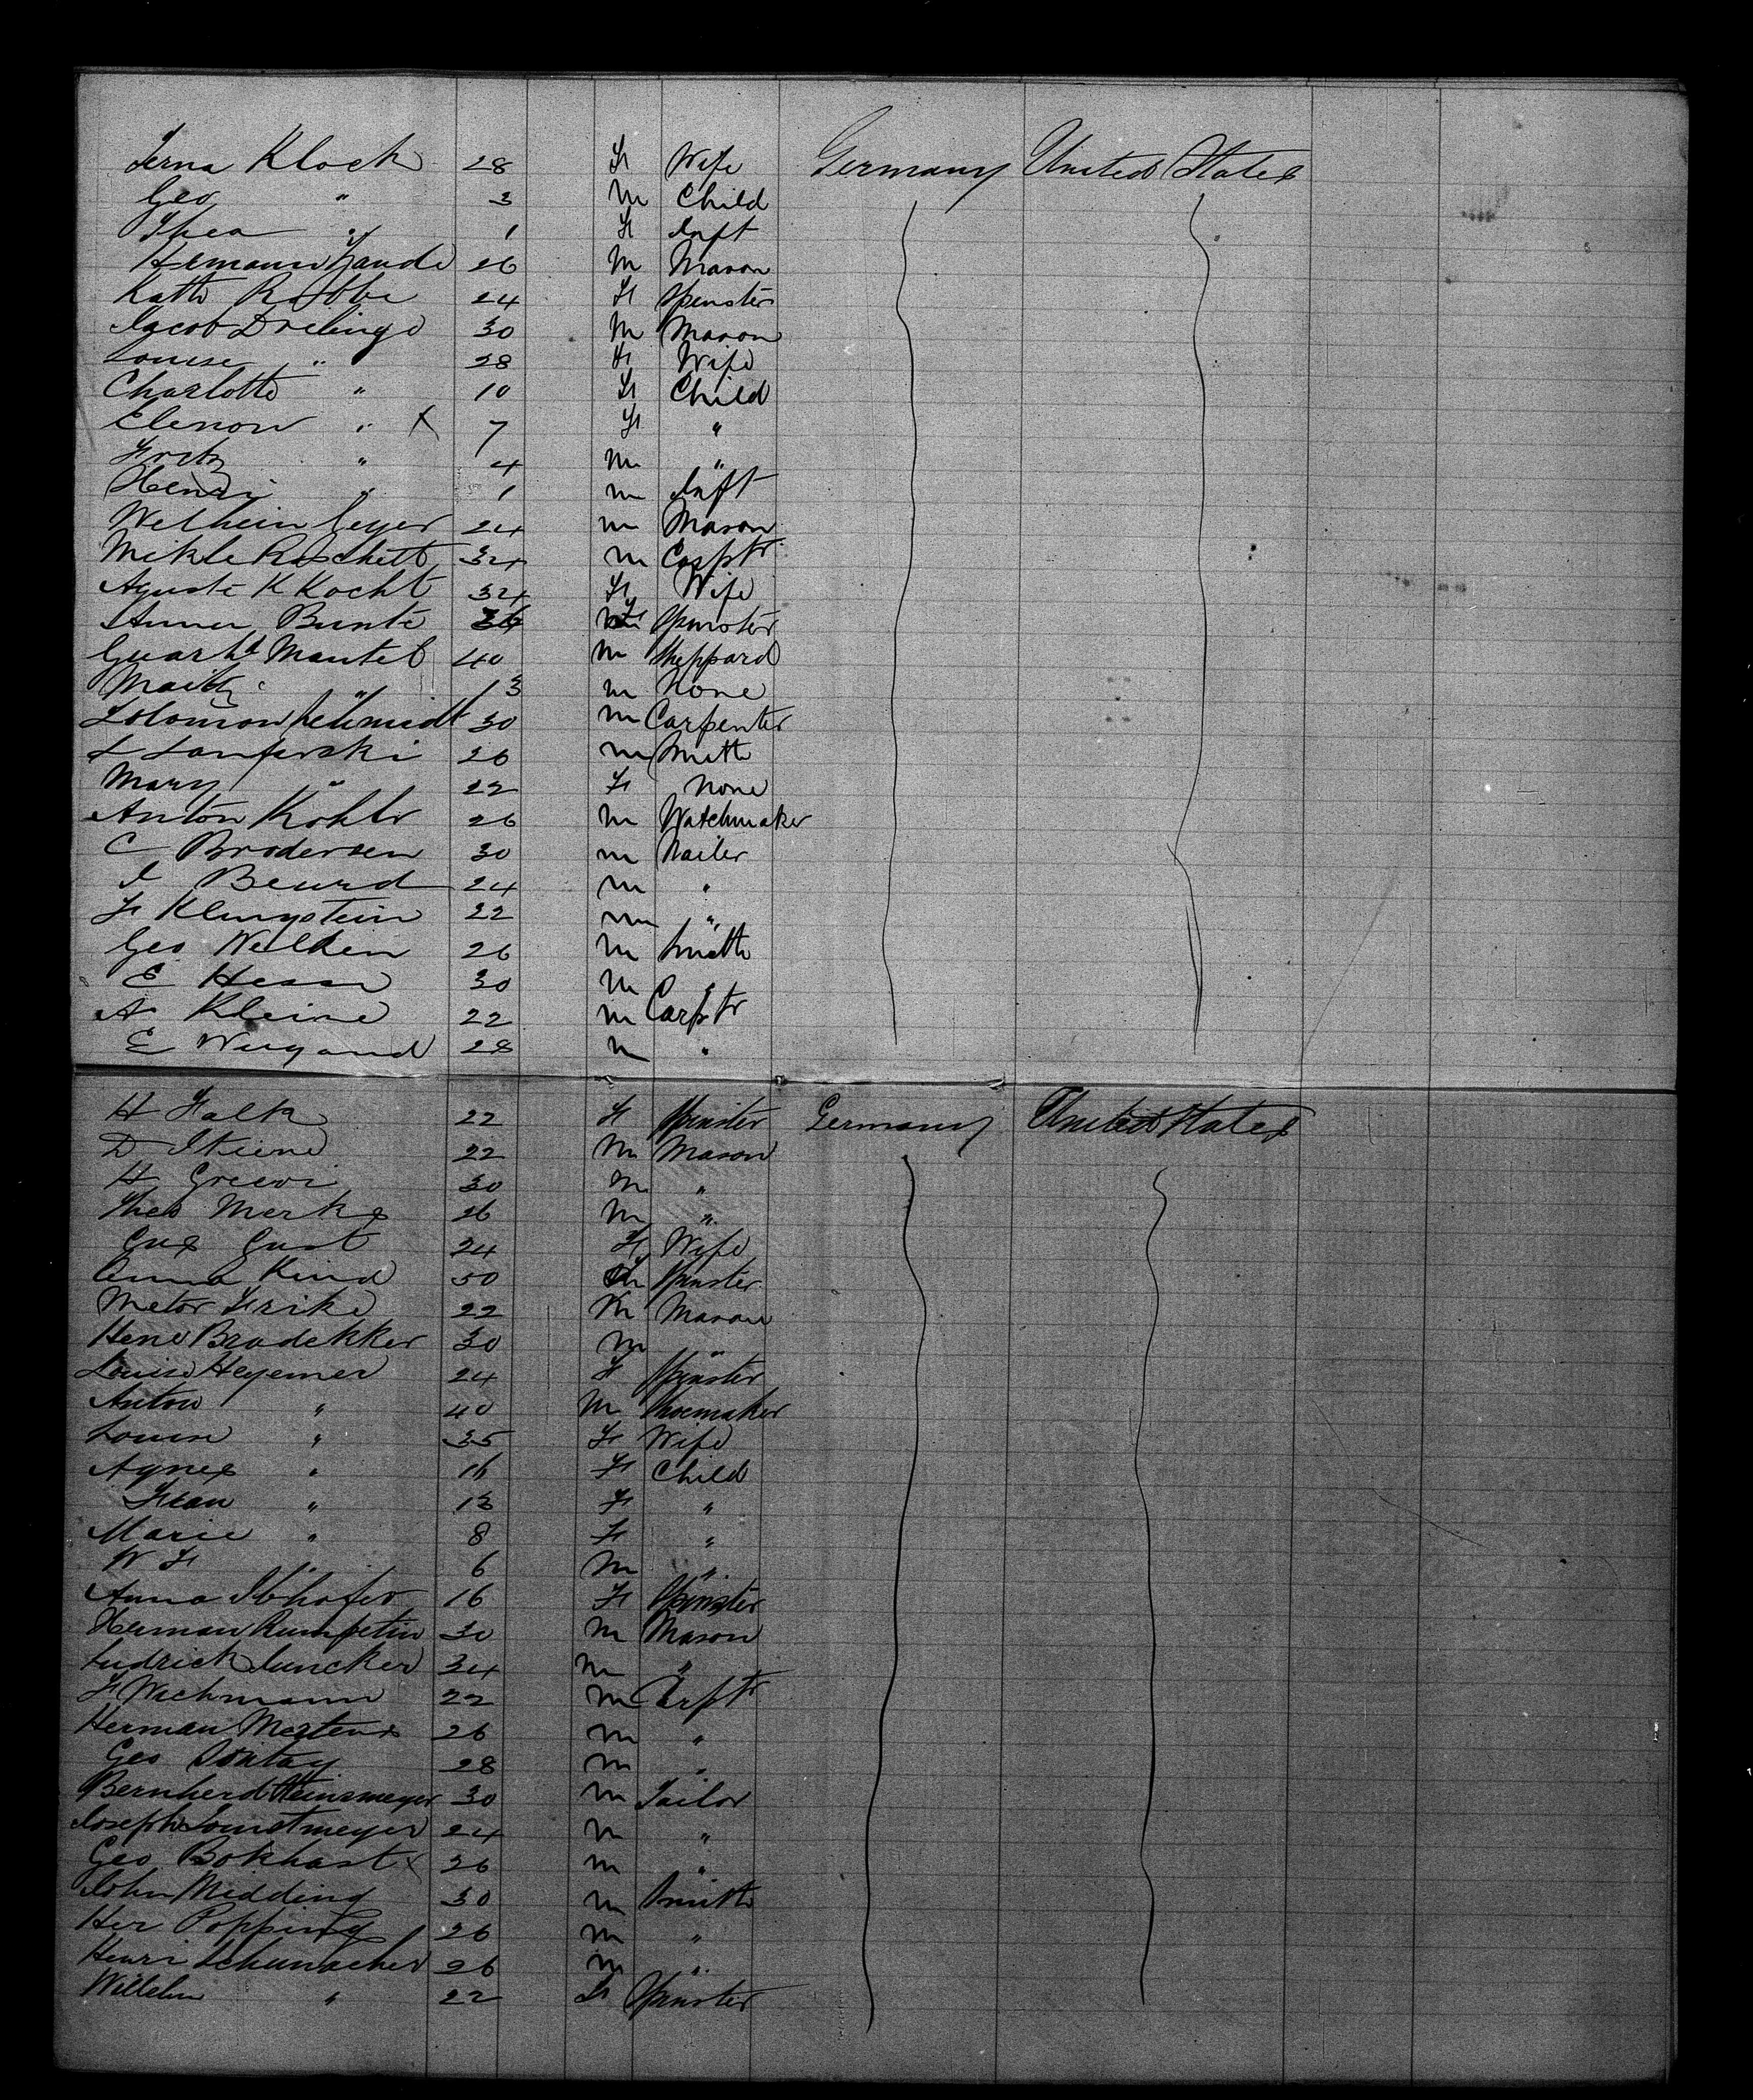 Kloch 28 F Wife Germany United States
Geo " 3 M Child
Thea " 1 F Inft
Hemann 26 M Mason
Kath 24 F Spinster
Jacob 30 M Mason
Louise " 28 F Wife
Charlotte " 10 F Child
Elenor " X 7 F "
Fritz " 4 M "
Henri " 1 M Inft
Geyer 24 M Mason
34 M Carptr
Kocht 34 F Wife
Bunte F Spinster
Mantel 40 M Sheppard
" 13 M None
Solomon Schmidt 30 M Carpenter
L 26 M Smith
Mary " 22 F None
Anton Kohlr 26 M Watchmaker
C Brodersen 30 M
24 M "
F Klingstein 22 M "
Geo Welken 26 M Smith
E Hesse 30 M "
A Kleine 22 M Carptr
E Weigand 28 M "
H Falk 22 F Spinster Germany United States
D 22 M Mason
H 30 M "
Theo Merks 26 M "
Gus Gust 24 F Wife
Anna Kind 50 Spinster
Frike 22 M Mason
Bradekker 30 M "
Louise Hegemer 24 F Spinster
Anton " 40 M Shoemaker
Louise " 35 F Wife
Agnes " 16 F Child
" 13 F "
Marie " 8 F "
W F " 6 M "
Anna 16 F Spinster
Herman 30 M Mason
Juncker 34 M "
F Wichmann 22 M Carptr
Herman Mertens 26 M "
Geo 28 M "
Bernherd Heinsmeyer 30 M Tailor
Joseph 24 M "
Geo Bokhast 26 M "
John Midding 30 M Smith
Her Popping 26 M "
Henri Schumacher 26 M "
Willelm " 22 F Spinster